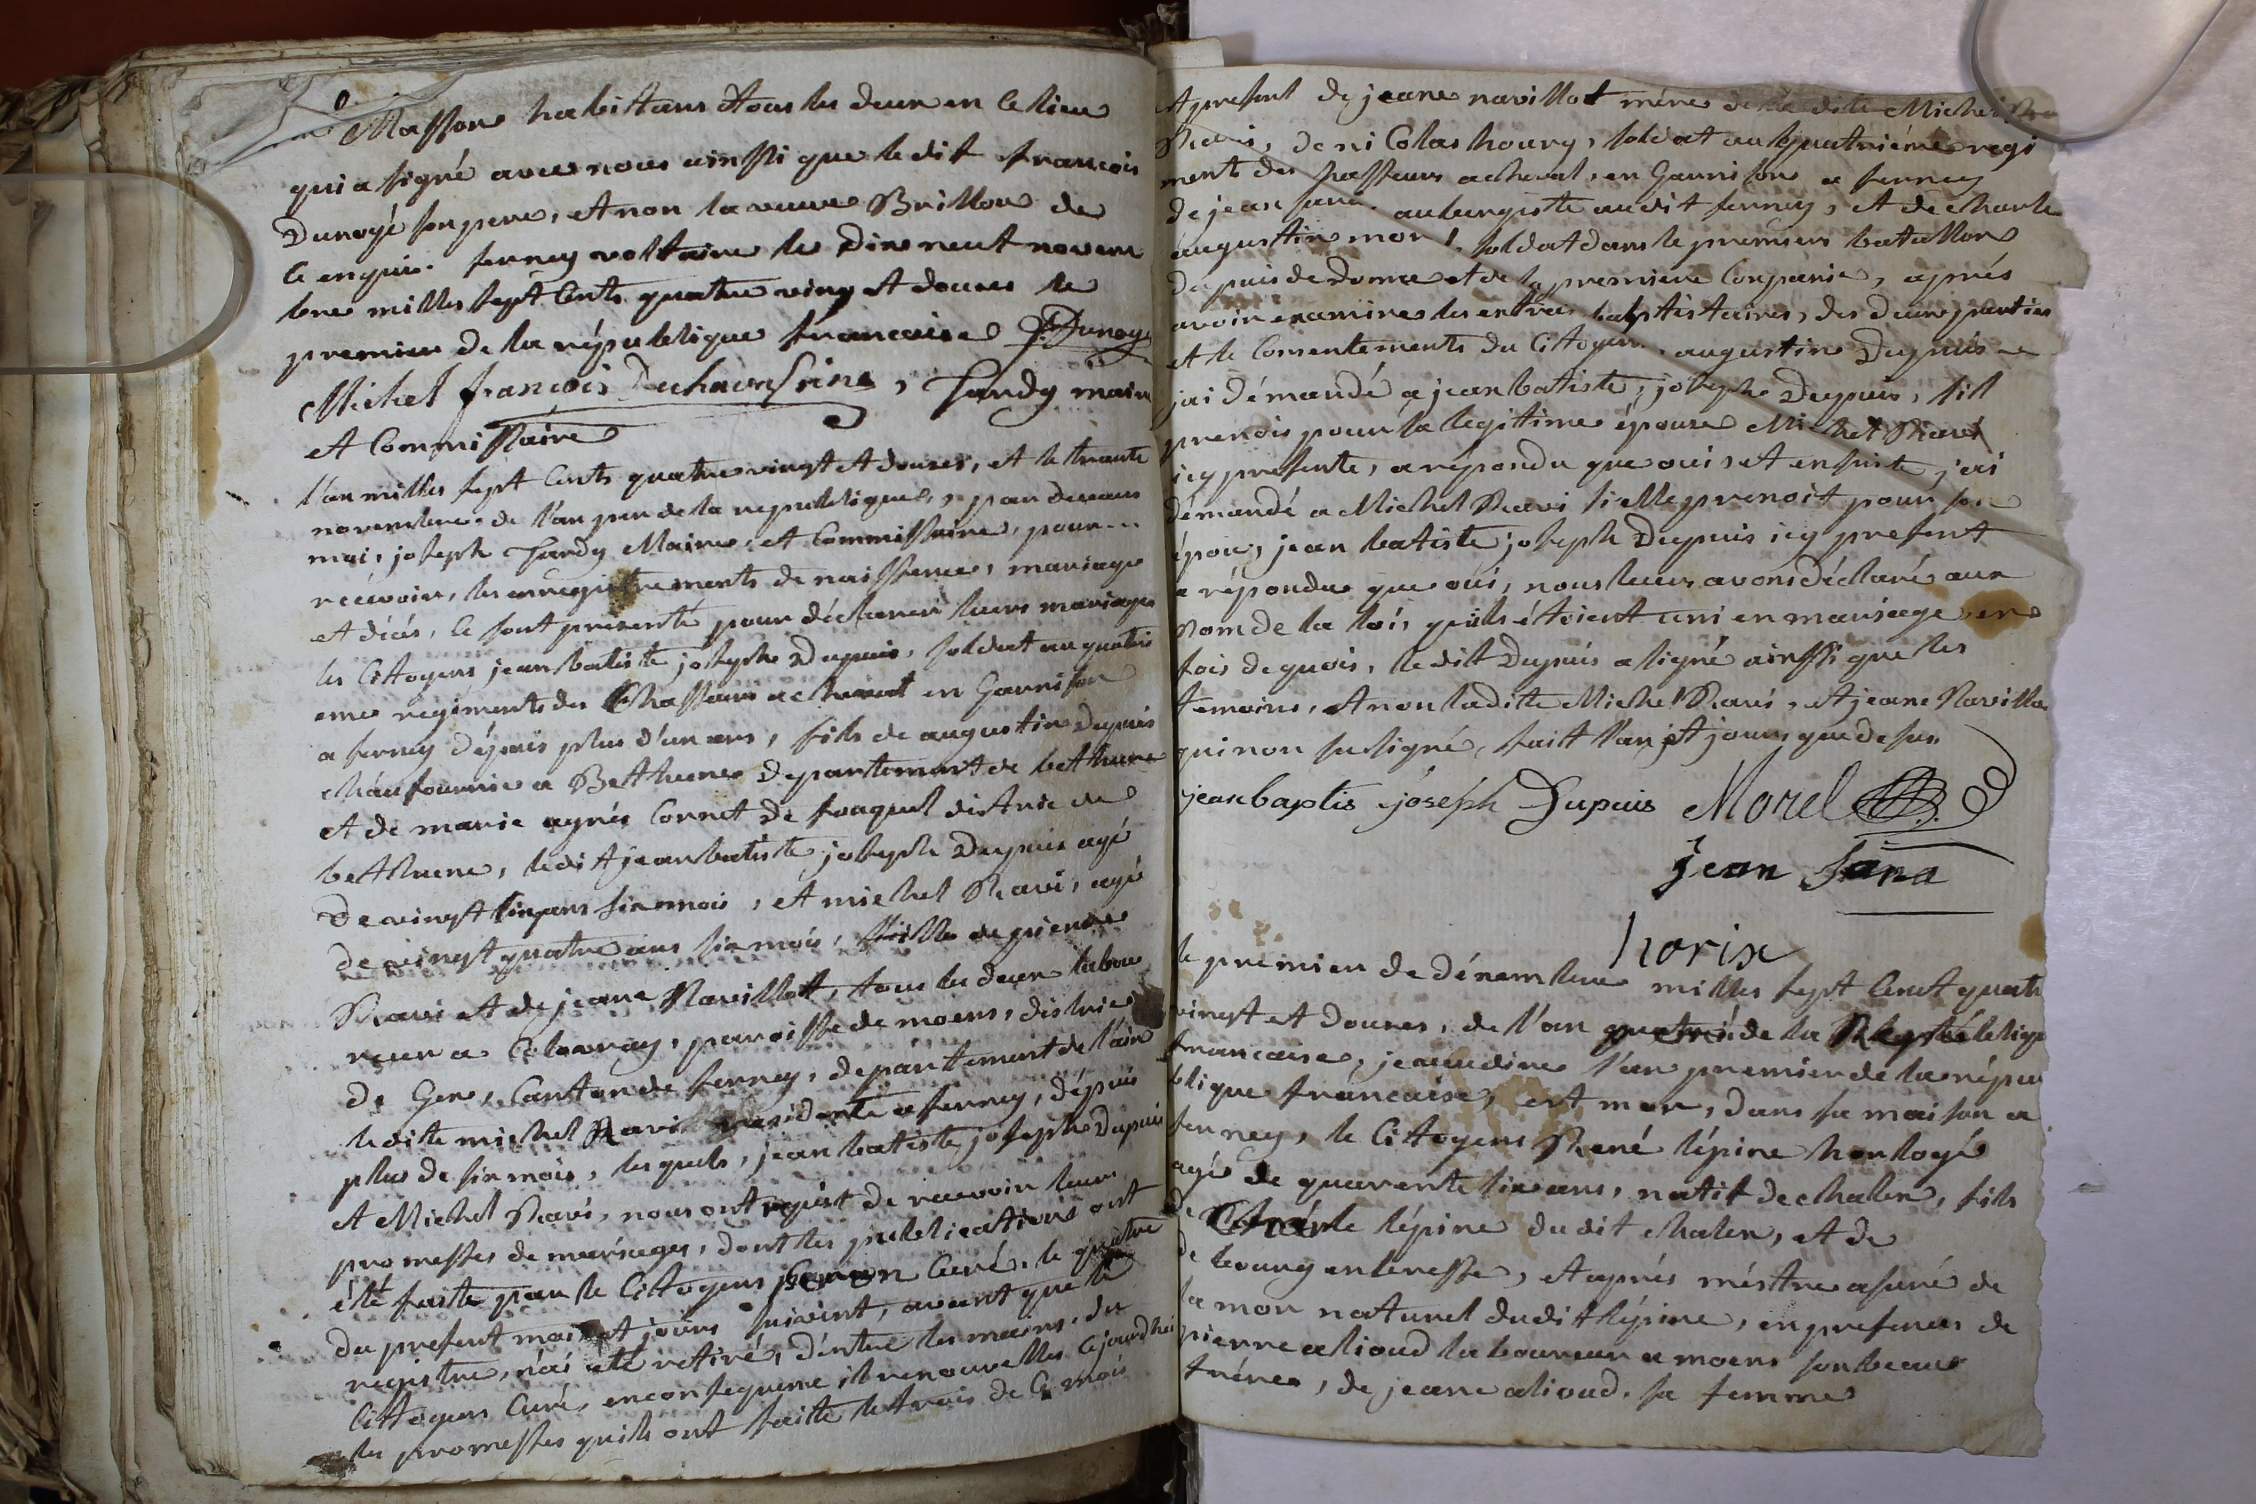 Masson habitans tous les deux en ce lieu
qui a signé avec nous ainssi que ledit francois
Dunoyé son pere, et non la veuve Brillon de
ce enquis. ferney voltaire le Dix neuf novem
bre milles sept cents quatre ving et douzes le
premier de la république francaise J. Dunoy
Michel francois, Tardy maire
et Commissaire
l'an milles sept cents quatre vingt et douzes, et le trante
novembre de l'an pre de la republiques, par devans
moi, joseph Tardy Maire, et Commissaire, pour
recevoir, les enregistrements de naissence, mariage
et décés, ce sont présenté pour déclarer leurs mariage
les Cittoyens jean batiste joseph Dupuis, soldat au quatri
eme regiments des Chasseurs a cheval en Garnison
a ferney dépuis plus d'un ans, fils de augustin Dupuis
chaufournié a Bethune departement de bethune
et de marie agnés Cornet de fouquel distric de
bethune, ledit jean batiste joseph Dupuis agé
de vingt sinq ans six mois, et michel Ravi, agé
de vingt quatre ans six mois, fille de pierre
Ravi et de jeane Navillot, tous les deux labou
reur a Colovray, paroisse de moens, distric
de Gex, Canton de ferney, departement de l'ain
ledite michel Ravi residente a ferney, dépuis
plus de six mois, lesquels, jean batiste joseph Dupuis
et Michel Ravi, nous ont requist de recevoir leur
promesses de mariages, dont les publications ont
été faite par le Cittoyens Curé, le quatre
du present mois et jours suivent, avant que le
registre, n'ai été retiré, d'entre les mains du
Cittoyen Curé, en consequence il renouvelles ce jourdhui
les promesses quils ont faitte le trois de ce mois
et present de jeane navillot mére de la dite Michel
Ravi, de ni Colas houry, soldat au quatriéme regi
ment des chasseurs a cheval, en Garnison a ferney
de jean aubergiste audit ferney, et de charle
augustin morel soldat dans le premiers batallon
du puis de Dome et de la premiere Conpanie, aprés
avoir examines les extrai batistaires, des deux parties
et le Consentements du Cittoyen augustin Dupuis
jai démandé a jean batiste, joseph Dupuis, sil
prenois pour sa legitime épouse Michel Ravi
icy presente, a répondu que oui, et ensuite j'ai
démandé a Michel Ravi si elle prenoit pour son
époux, jean batiste joseph Dupuis icy present
a répondue que oui, nous leurs avons déclaré aux
Nom de la loi, quils étoient uni en mariage en
fois de quois, ledit Dupuis a signé ainssi que les
temoins, et non ladite Michel Ravi, et jeane Navillo
qui non su signé, fait l'an et jours que desus
jeanbaptis joséph Dupuis Morel
jean
horix
le premier de décembre milles sept Cent quatr
vingt et Douzes, de l'an de la Republiqu
francaise, je veu dire l'an premier de la répu
blique francaise, est mor, dans sa maison a
ferney, le Cittoyens René lépine horlogé
agé de quarente six ans, natif de chalex, fils
de Charle lépine du dit chalex, et de
de bourg en bresse, et aprés méstre asuré de
la mor naturel dudit lépine, en presences de
pierre alioud laboureur a moens son beau
frére, de jeane alioud sa femme